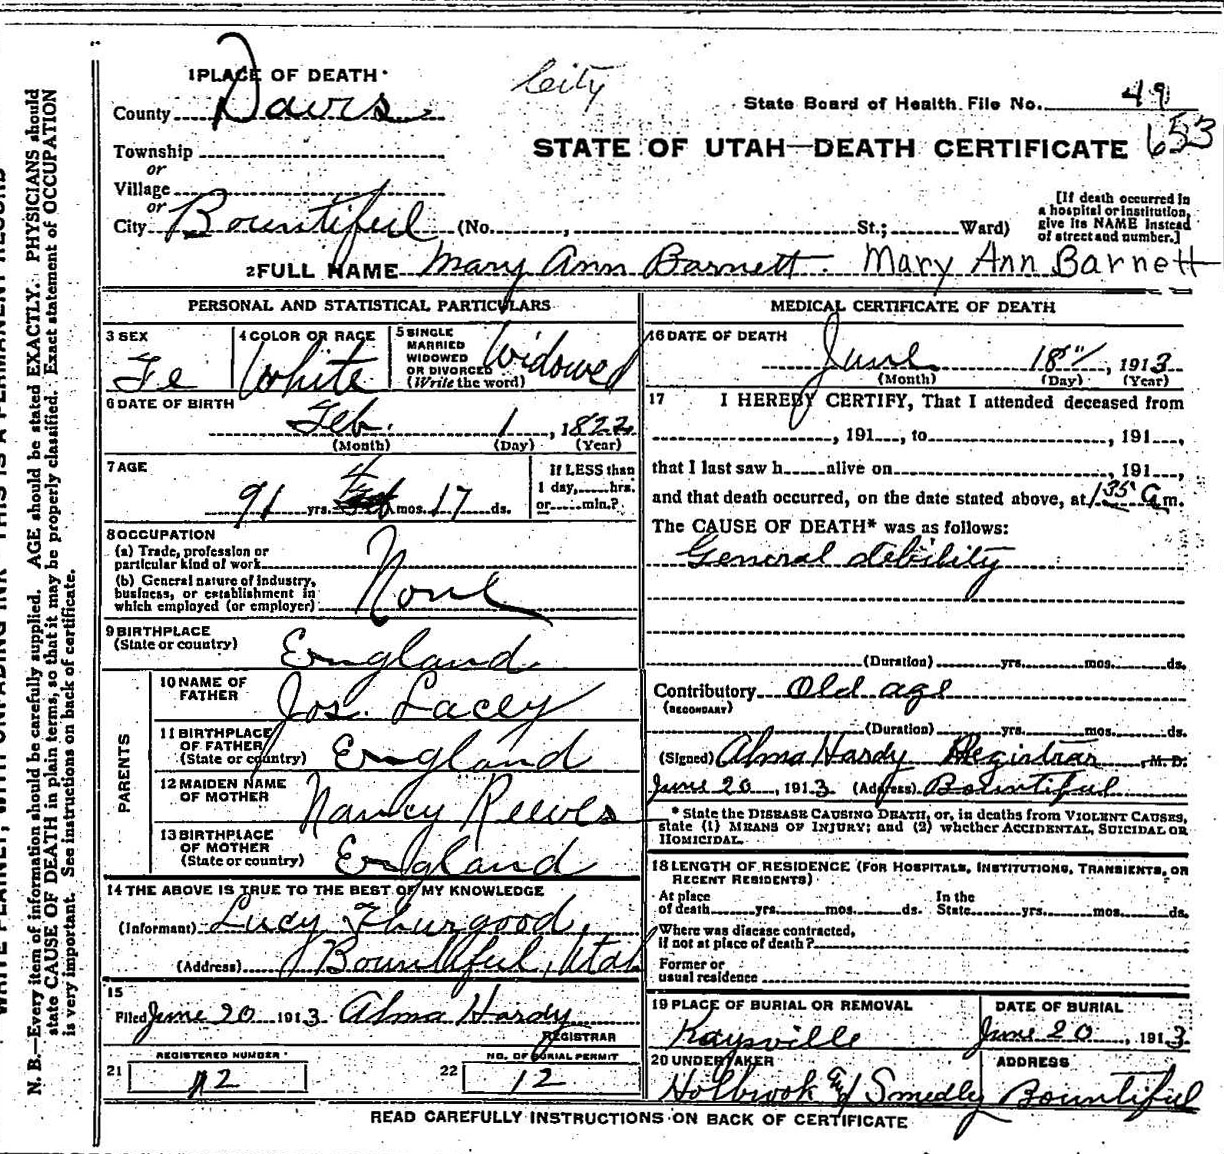 1 PLACE OF DEATH
County Davis
City
State Board of Health File No. 49
653
Township
or
Village
or
City Bountiful (No. , St.; Ward)
STATE OF UTAH—DEATH CERTIFICATE
[If death occurred in
a hospital or institution,
give its NAME instead
of street and number.]
2 FULL NAME Mary Ann Barnett. Mary Ann Barnett
PERSONAL AND STATISTICAL PARTICULARS
3 SEX
Fe
4 COLOR OR RACE
White
5 SINGLE
MARRIED
WIDOWED
OR DIVORCED
(Write the word)
Widowed
6 DATE OF BIRTH
Feb. 1, 1822
(Month) (Day) (Year)
7 AGE
91 yrs. mos. 17 ds.
If LESS than
1 day, hrs.
or min.?
8 OCCUPATION
(a) Trade, profession or
particular kind of work
(b) General nature of industry,
business, or establishment in
which employed (or employer)
None
9 BIRTHPLACE
(State or country)
England
PARENTS
10 NAME OF
FATHER
Jos. Lacey
11 BIRTHPLACE
OF FATHER
(State or country)
England
12 MAIDEN NAME
OF MOTHER
Nancy Reeves
13 BIRTHPLACE
OF MOTHER
(State or country)
England
14 THE ABOVE IS TRUE TO THE BEST OF MY KNOWLEDGE
(Informant) Lucy Thurgood,
(Address) Bountiful, Utah
15
Filed June 20 1913 Alma Hardy
REGISTRAR
REGISTERED NUMBER
21 12
NO. OF BURIAL PERMIT
22 12
MEDICAL CERTIFICATE OF DEATH
16 DATE OF DEATH
June 18", 1913
(Month) (Day) (Year)
17 I HEREBY CERTIFY, That I attended deceased from
, 191 , to , 191 ,
that I last saw h alive on , 191 ,
and that death occurred, on the date stated above, at 1 35 a m.
The CAUSE OF DEATH* was as follows:
General debility
(Duration) yrs. mos. ds.
Contributory Old age
(SECONDARY)
(Duration) yrs. mos. ds.
(Signed) Alma Hardy Registrar, M. D.
June 20, 1913 (Address) Bountiful
* State the DISEASE CAUSING DEATH, or, in deaths from VIOLENT CAUSES,
state (1) MEANS OF INJURY; and (2) whether ACCIDENTAL, SUICIDAL OR
HOMICIDAL.
18 LENGTH OF RESIDENCE (FOR HOSPITALS, INSTITUTIONS, TRANSIENTS, OR
RECENT RESIDENTS)
At place
of death yrs. mos. ds.
In the
State yrs. mos. ds.
Where was disease contracted,
if not at place of death?
Former or
usual residence
19 PLACE OF BURIAL OR REMOVAL
Kaysville
DATE OF BURIAL
June 20, 1913
20 UNDERTAKER
Holbrook and Smedly
ADDRESS
Bountiful
READ CAREFULLY INSTRUCTIONS ON BACK OF CERTIFICATE
N. B.—Every item of information should be carefully supplied. AGE should be stated EXACTLY. PHYSICIANS should
state CAUSE OF DEATH in plain terms, so that it may be properly classified. Exact statement of OCCUPATION
is very important. See instructions on back of certificate.